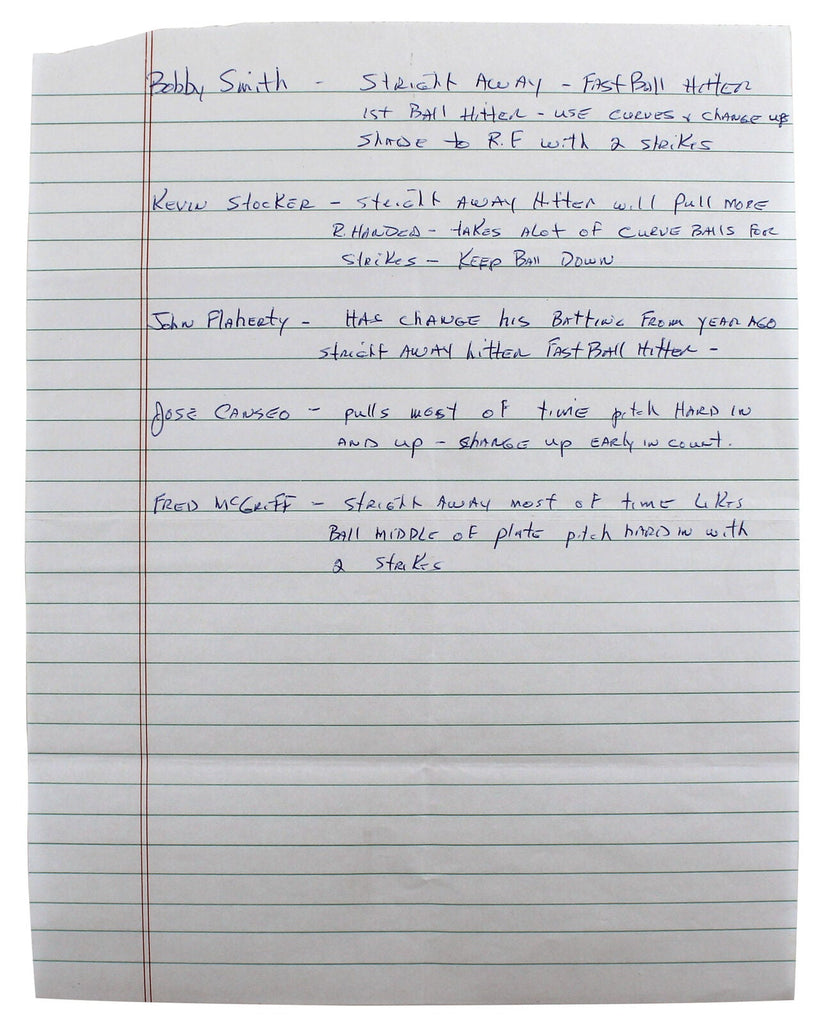 Bobby Smith - Streight Away - Fast Ball Hitter
1st Ball Hitter - use curves & change up
Shade to R.F with 2 strikes
Kevin Stocker - Streight Away Hitter will pull more
R. Handed - takes alot of curve balls for
strikes - Keep Ball Down
John Flaherty - Has change his Batting From year ago
streight Away hitter Fast Ball Hitter -
Jose Canseo - pulls most of time pitch Hard in
and up - change up early in count.
Fred McGriff - Streight Away most of time likes
Ball middle of plate pitch hard in with
2 strikes